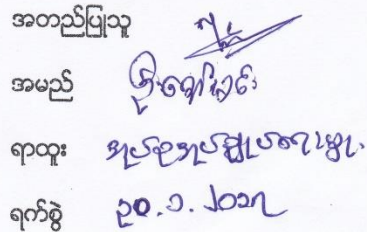 အတည်ပြုသူ
အမည် ဦးကျော်မင်း
ရာထူး အုပ်စုအုပ်ချုပ်ရေးမှူး
ရက်စွဲ ၃၀.၁.၂၀၁၇